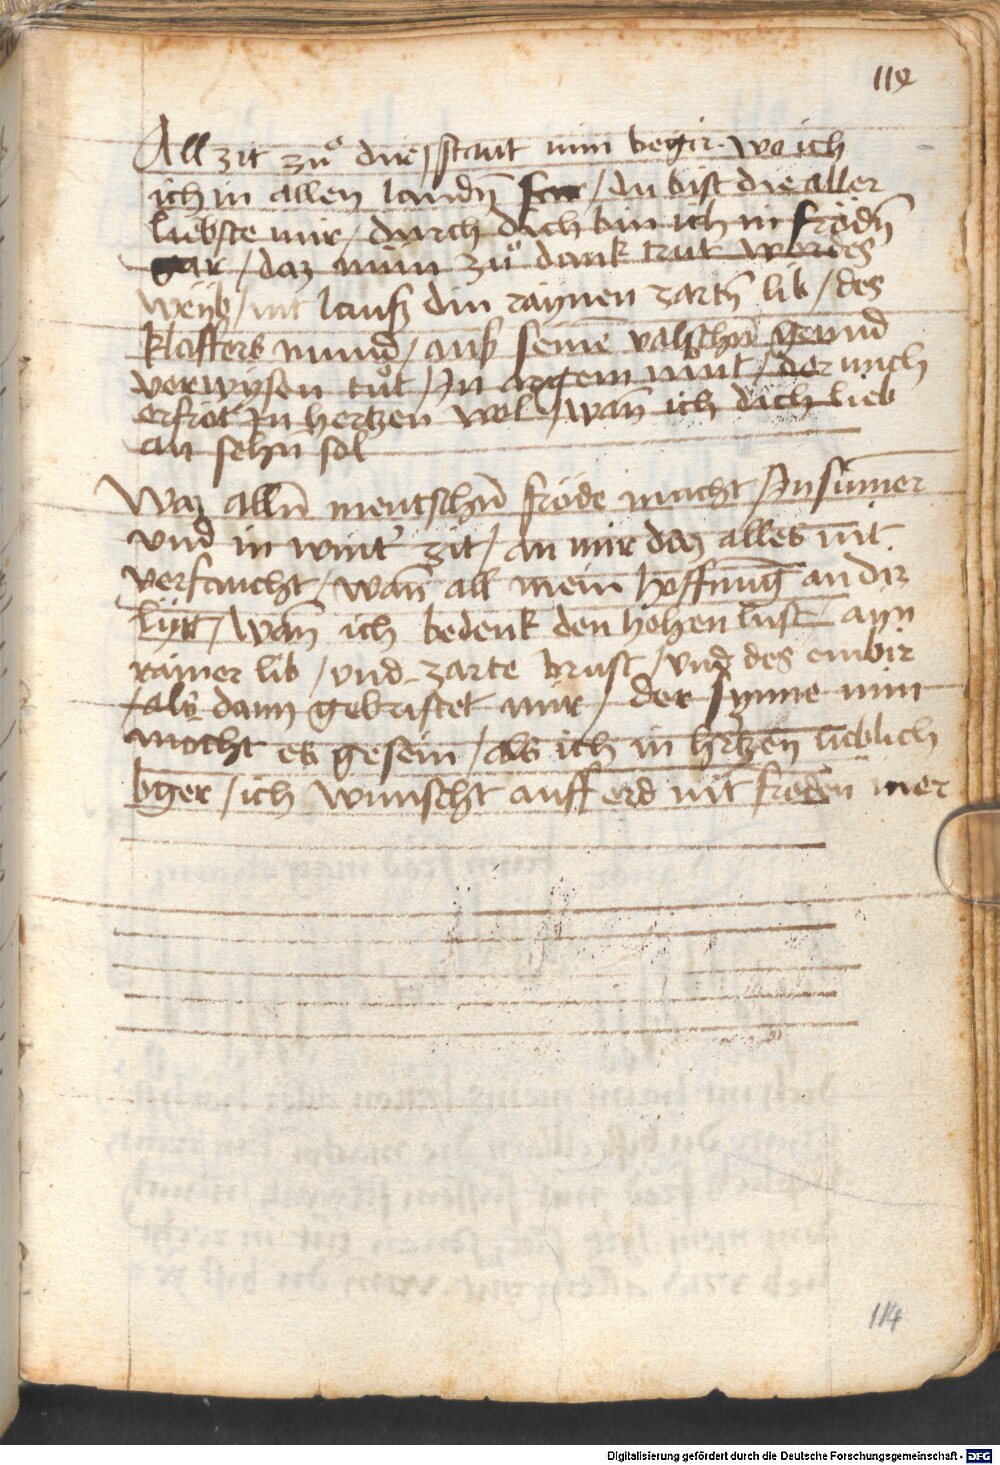 119
All zit zuͦ dir / staut min begir. wo ich
ich in allen landn̄ far / du bist die aller
liebste mir / durch dich bin ich in frödn̄
gar / daz nim zuͦ dank trut werdes
weyb / nit lauß din raynen zartn̄ lib / des
klaffers mund / auß seinē valschn̄ grund
verwysen tuͦt / In argem mut / der mich
erfröt In hertzen wol / wan̄ ich dich lieb
an sehn sol
Waz alln̄ mentschn̄ fröde macht / In sum̄er
und in wint' zit / an mir daz alles nit
verfaucht / wan̄ all mein hoffnung an dir
lytt / wan̄ ich bedenk den hohen lust ayn
rainer lib / und zarte brust / und des enbir
/ als dann gebristet mir / der synne min
mocht es gesein / als ich in hrtzen lieblich
bger / ich wunscht auff erd nit fröden mer
114
Digitalisierung gefördert durch die Deutsche Forschungsgemeinschaft - DFG